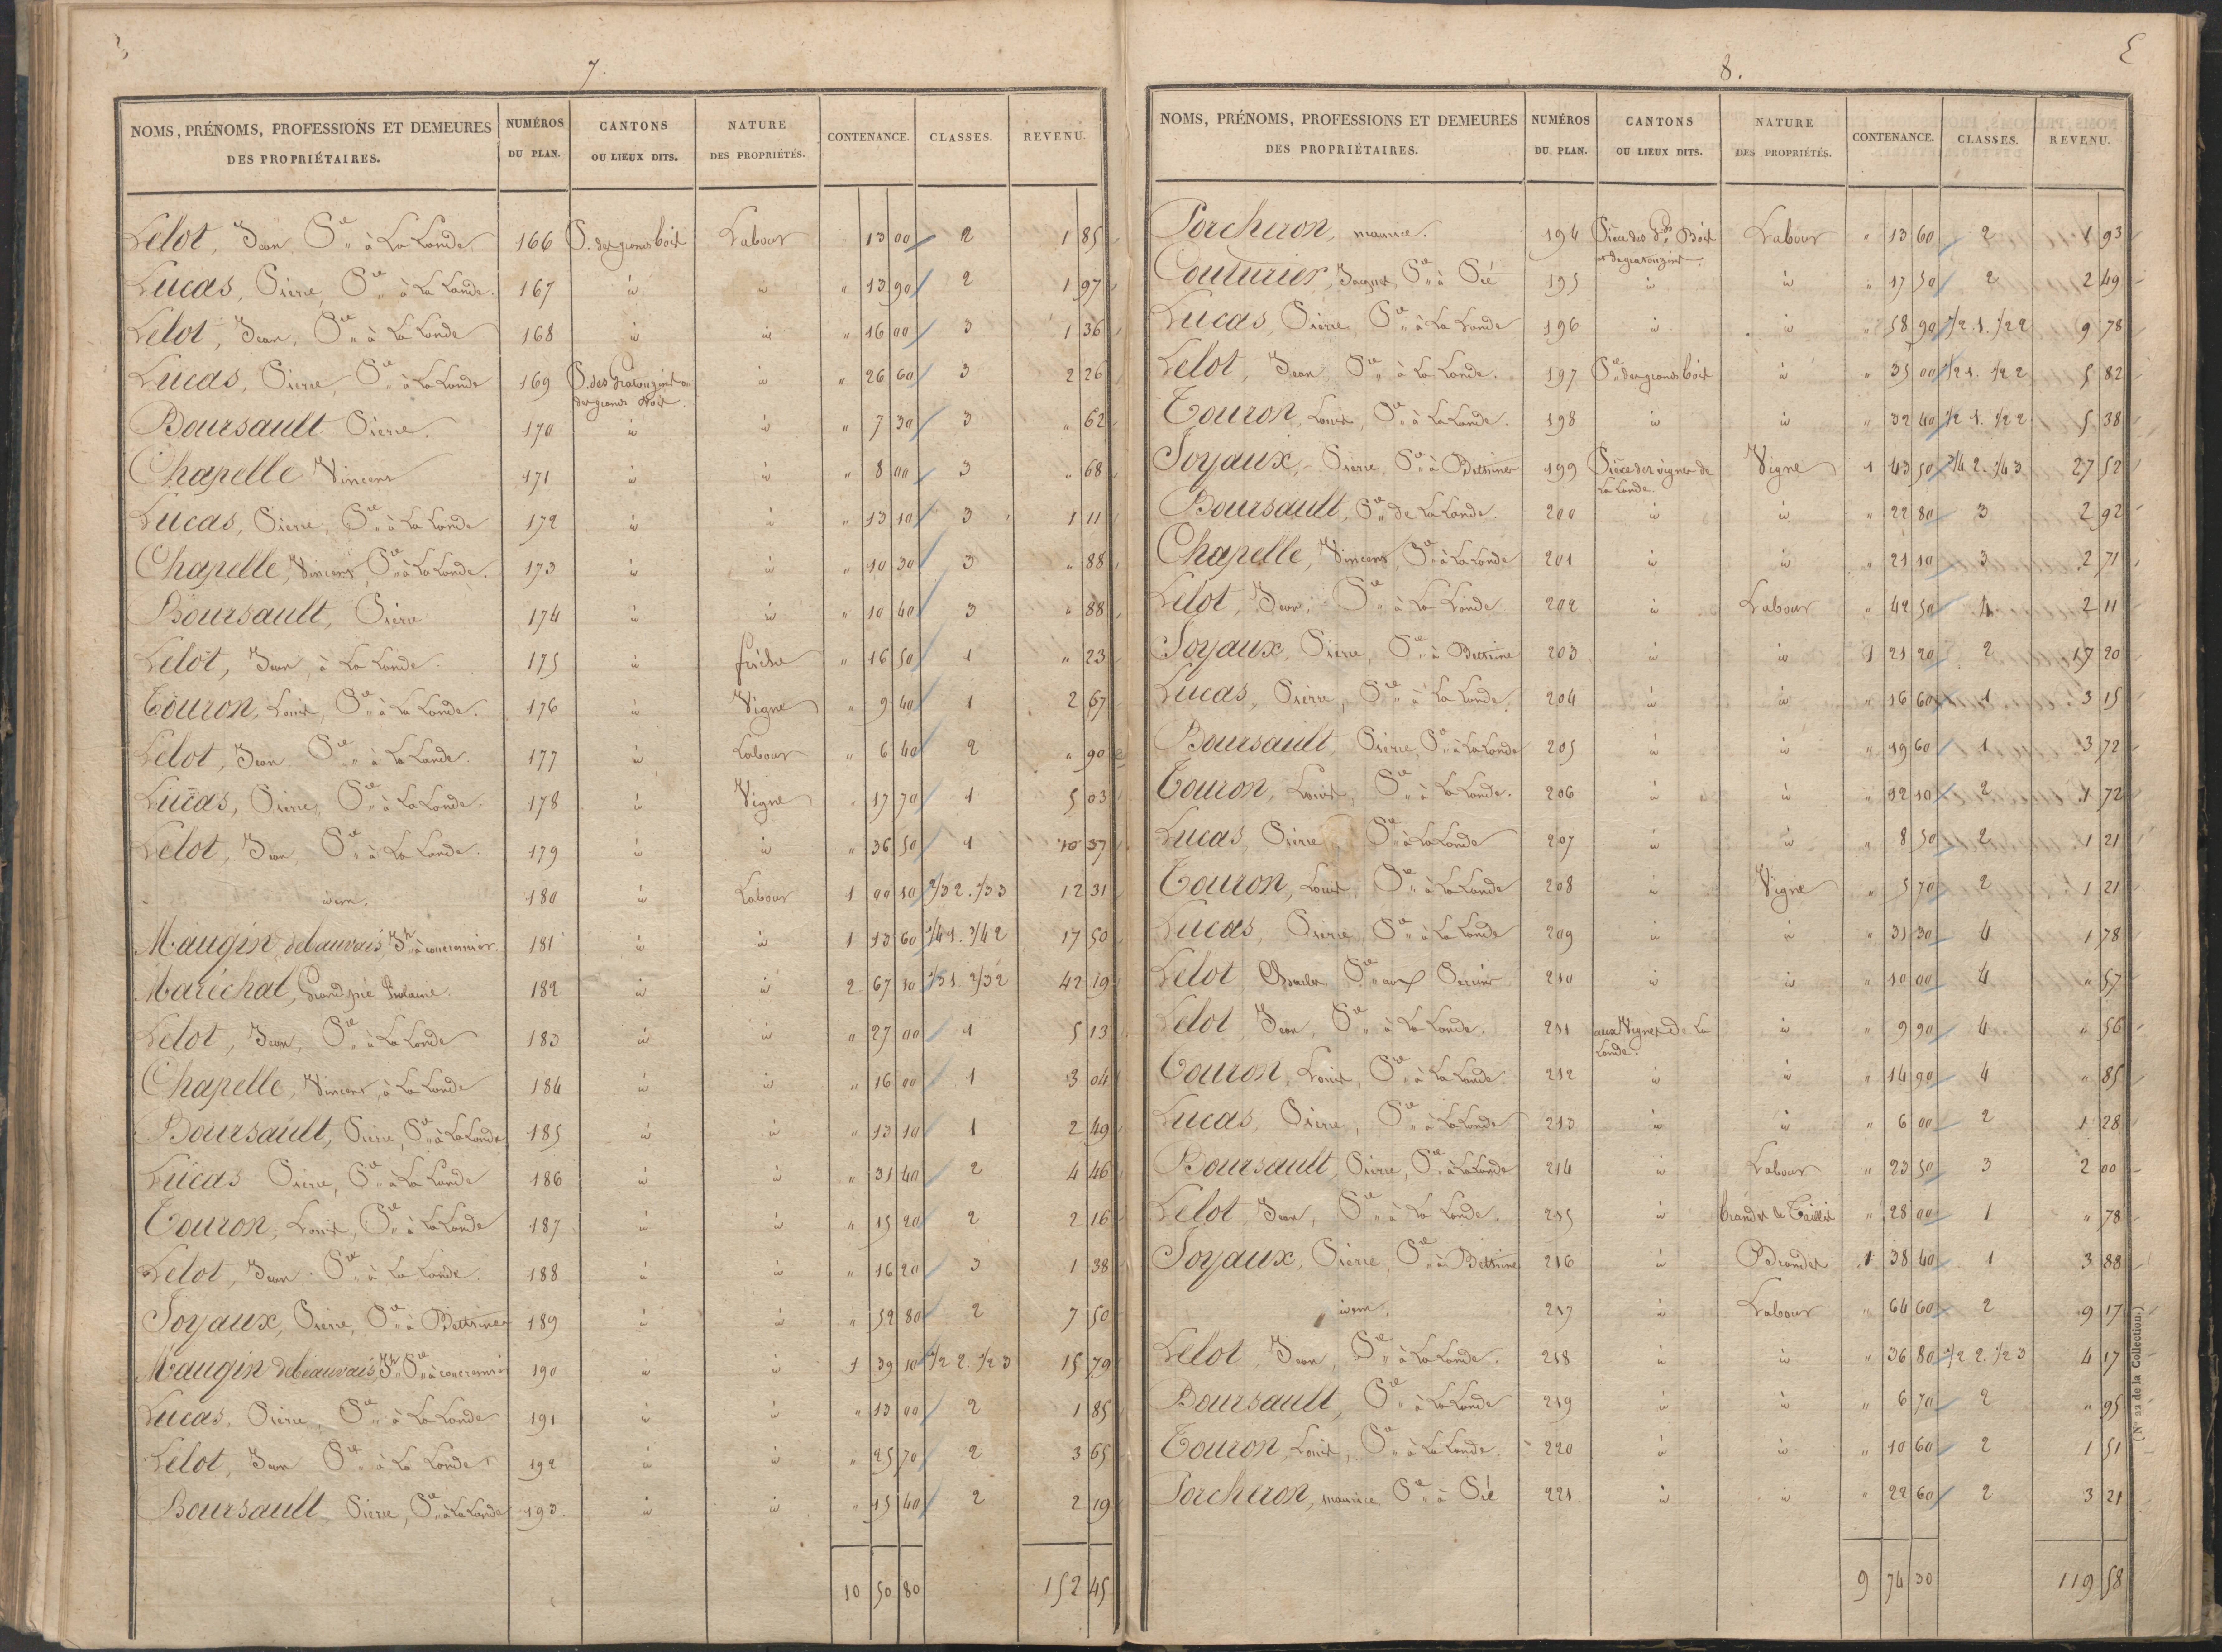 7.
NOMS, PRÉNOMS, PROFESSIONS ET DEMEURES DES PROPRIÉTAIRES. NUMÉROS DU PLAN. CANTONS OU LIEUX DITS. NATURE DES PROPRIÉTÉS. CONTENANCE. CLASSES. REVENU.
Lelot, Jean P.re à La Lande 166 P. des grands bois Labour 13 00 2 1 85
Lucas, Pierre, P.re à La Lande. 167 id id " 13 90 2 1 97
Lelot, Jean, P.re à La Lande 168 id id " 16 00 3 1 36
Lucas, Pierre, P.re à La Lande 169 P. des Gratouzins ou des grands Bois. id " 26 60 3 2 26
Boursault Pierre. 170 id id " 7 30 3 " 62
Chapelle Vincent 171 id id " 8 00 3 " 68
Lucas, Pierre, P.re à La Lande 172 id id " 13 10 3 1 11
Chapelle, Vincent, P.re à La Lande. 173 id id " 10 30 3 " 88
Boursault, Pierre 174 id id " 10 40 3 " 88
Lelot, Jean, à La Lande. 175 id friche " 16 50 1 " 23
Touron, Louis, P.re à La Lande. 176 id Vigne " 9 40 1 2 67
Lelot, Jean P.re à La Lande. 177 id Labour " 6 40 2 " 90
Lucas, Pierre, P.re à La Lande. 178 id Vigne " 17 70 1 5 03
Lelot, Jean, P.re à La Lande. 179 id id " 36 50 1 10 37
idem. 180 id Labour 1 00 10 2/3 2. 1/3 3 12 31
Maugin debauvais, J.h à concremiers. 181 id id 1 13 60 1/4 1. 3/4 2 17 50
Maréchal, Grandpré 182 id id 2 67 30 1/3 1 2/3 2 42 19
Lelot, Jean, P.re à La Lande 183 id id " 27 00 1 5 13
Chapelle, Vincent, à La Lande 184 id id " 16 00 1 3 04
Boursault, Pierre, P.re à La Lande 185 id id " 13 10 1 2 49
Lucas Pierre, P.re à La Lande 186 id id " 31 40 2 4 46
Touron, Louis, P.re à La Lande 187 id id " 15 20 2 2 16
Lelot, Jean P.re à La Lande. 188 id id " 16 20 3 1 38
Joyaux, Pierre, P.re à Bettrines 189 id id " 52 80 2 7 50
Maugin debeauvais, J.h P.re à concremiers 190 id id 1 39 10 1/2 2. 1/2 3 15 79
Lucas, Pierre, P.re à La Lande 191 id id " 13 00 2 1 85
Lelot, Jean P.re à La Lande 192 id id " 25 70 2 3 65
Boursault Pierre, P.re à La Lande 193. id id " 15 40 2 2 19
10 50 80 152 45
8.
NOMS, PRÉNOMS, PROFESSIONS ET DEMEURES DES PROPRIÉTAIRES. NUMÉROS DU PLAN. CANTONS OU LIEUX DITS. NATURE DES PROPRIÉTÉS. CONTENANCE. CLASSES. REVENU.
Porcheron, maurice. 194 Pièce des G.ds Bois et des gratouzins. Labour " 13 60 2 1 93
Couturier, Jacques, P.re à Pié 195 id id " 17 50 2 2 49
Lucas, Pierre, P.re à La Lande 196 id id " 58 90 1/2 1. 1/2 2 9 78
Lelot, Jean P.re à La Lande. 197 P.re des grands bois id " 35 00 1/2 1. 1/2 2 5 82
Touron, Louis, P.re à La Lande. 198 id id " 32 40 1/2 1. 1/2 2 5 38
Joyaux, Pierre, P.re à Bettrines 199 Pièce des vignes de La Lande. Vigne 1 43 50 3/4 2. 1/4 3 27 52
Boursault, P.re de La Lande. 200 id id " 22 80 3 2 92
Chapelle, Vincent, P.re à La Lande 201 id id " 21 10 3 2 71
Lelot, Jean, P.re à La Lande 202 id Labour " 42 50 4 2 11
Joyaux, Pierre, P.re à Bettrine 203 id id 1 21 20 2 17 20
Lucas, Pierre, P.re à La Lande. 204 id id " 16 60 1 3 15
Boursault, Pierre, P.re à La Lande 205 id id " 19 60 1 3 72
Touron, Louis, P.re à La Lande. 206 id id " 12 10 2 1 72
Lucas, Pierre, P.re à La Lande 207 id id " 8 50 2 1 21
Touron, Louis, P.re à La Lande 208 id Vigne " 5 70 2 1 21
Lucas, Pierre, P.re à La Lande 209 id id " 31 30 4 1 78
Lelot Charles, P.re aux 210 id id " 10 00 4 " 57
Lelot Jean, P.re à La Lande. 211 aux Vignes de La Lande. id " 9 90 4 " 56
Touron, Louis, P.re à La Lande. 212 id id " 14 90 4 " 85
Lucas, Pierre, P.re à La Lande 213 id id " 6 00 2 1 28
Boursault, Pierre, P.re à La Lande 214 id Labour " 23 50 3 2 00
Lelot, Jean, P.re à La Lande. 215 id brandes & Taillis " 28 00 1 " 78
Joyaux, Pierre, P.re à Bettrine 216 id Brandes 1 38 40 1 3 88
idem. 217 id Labour " 64 60 2 9 17
Lelot Jean, P.re à La Lande. 218 id id " 36 80 1/2 2. 1/2 3 4 17
Boursault, P.re à La Lande 219 id id " 6 70 2 " 95
Touron, Louis, P.re à La Lande. 220 id id " 10 60 2 1 51
Porcheron, maurice P.re à Pié 221 id id " 22 60 2 3 21
9 74 30 119 58
(N° 22 de la Collection.)